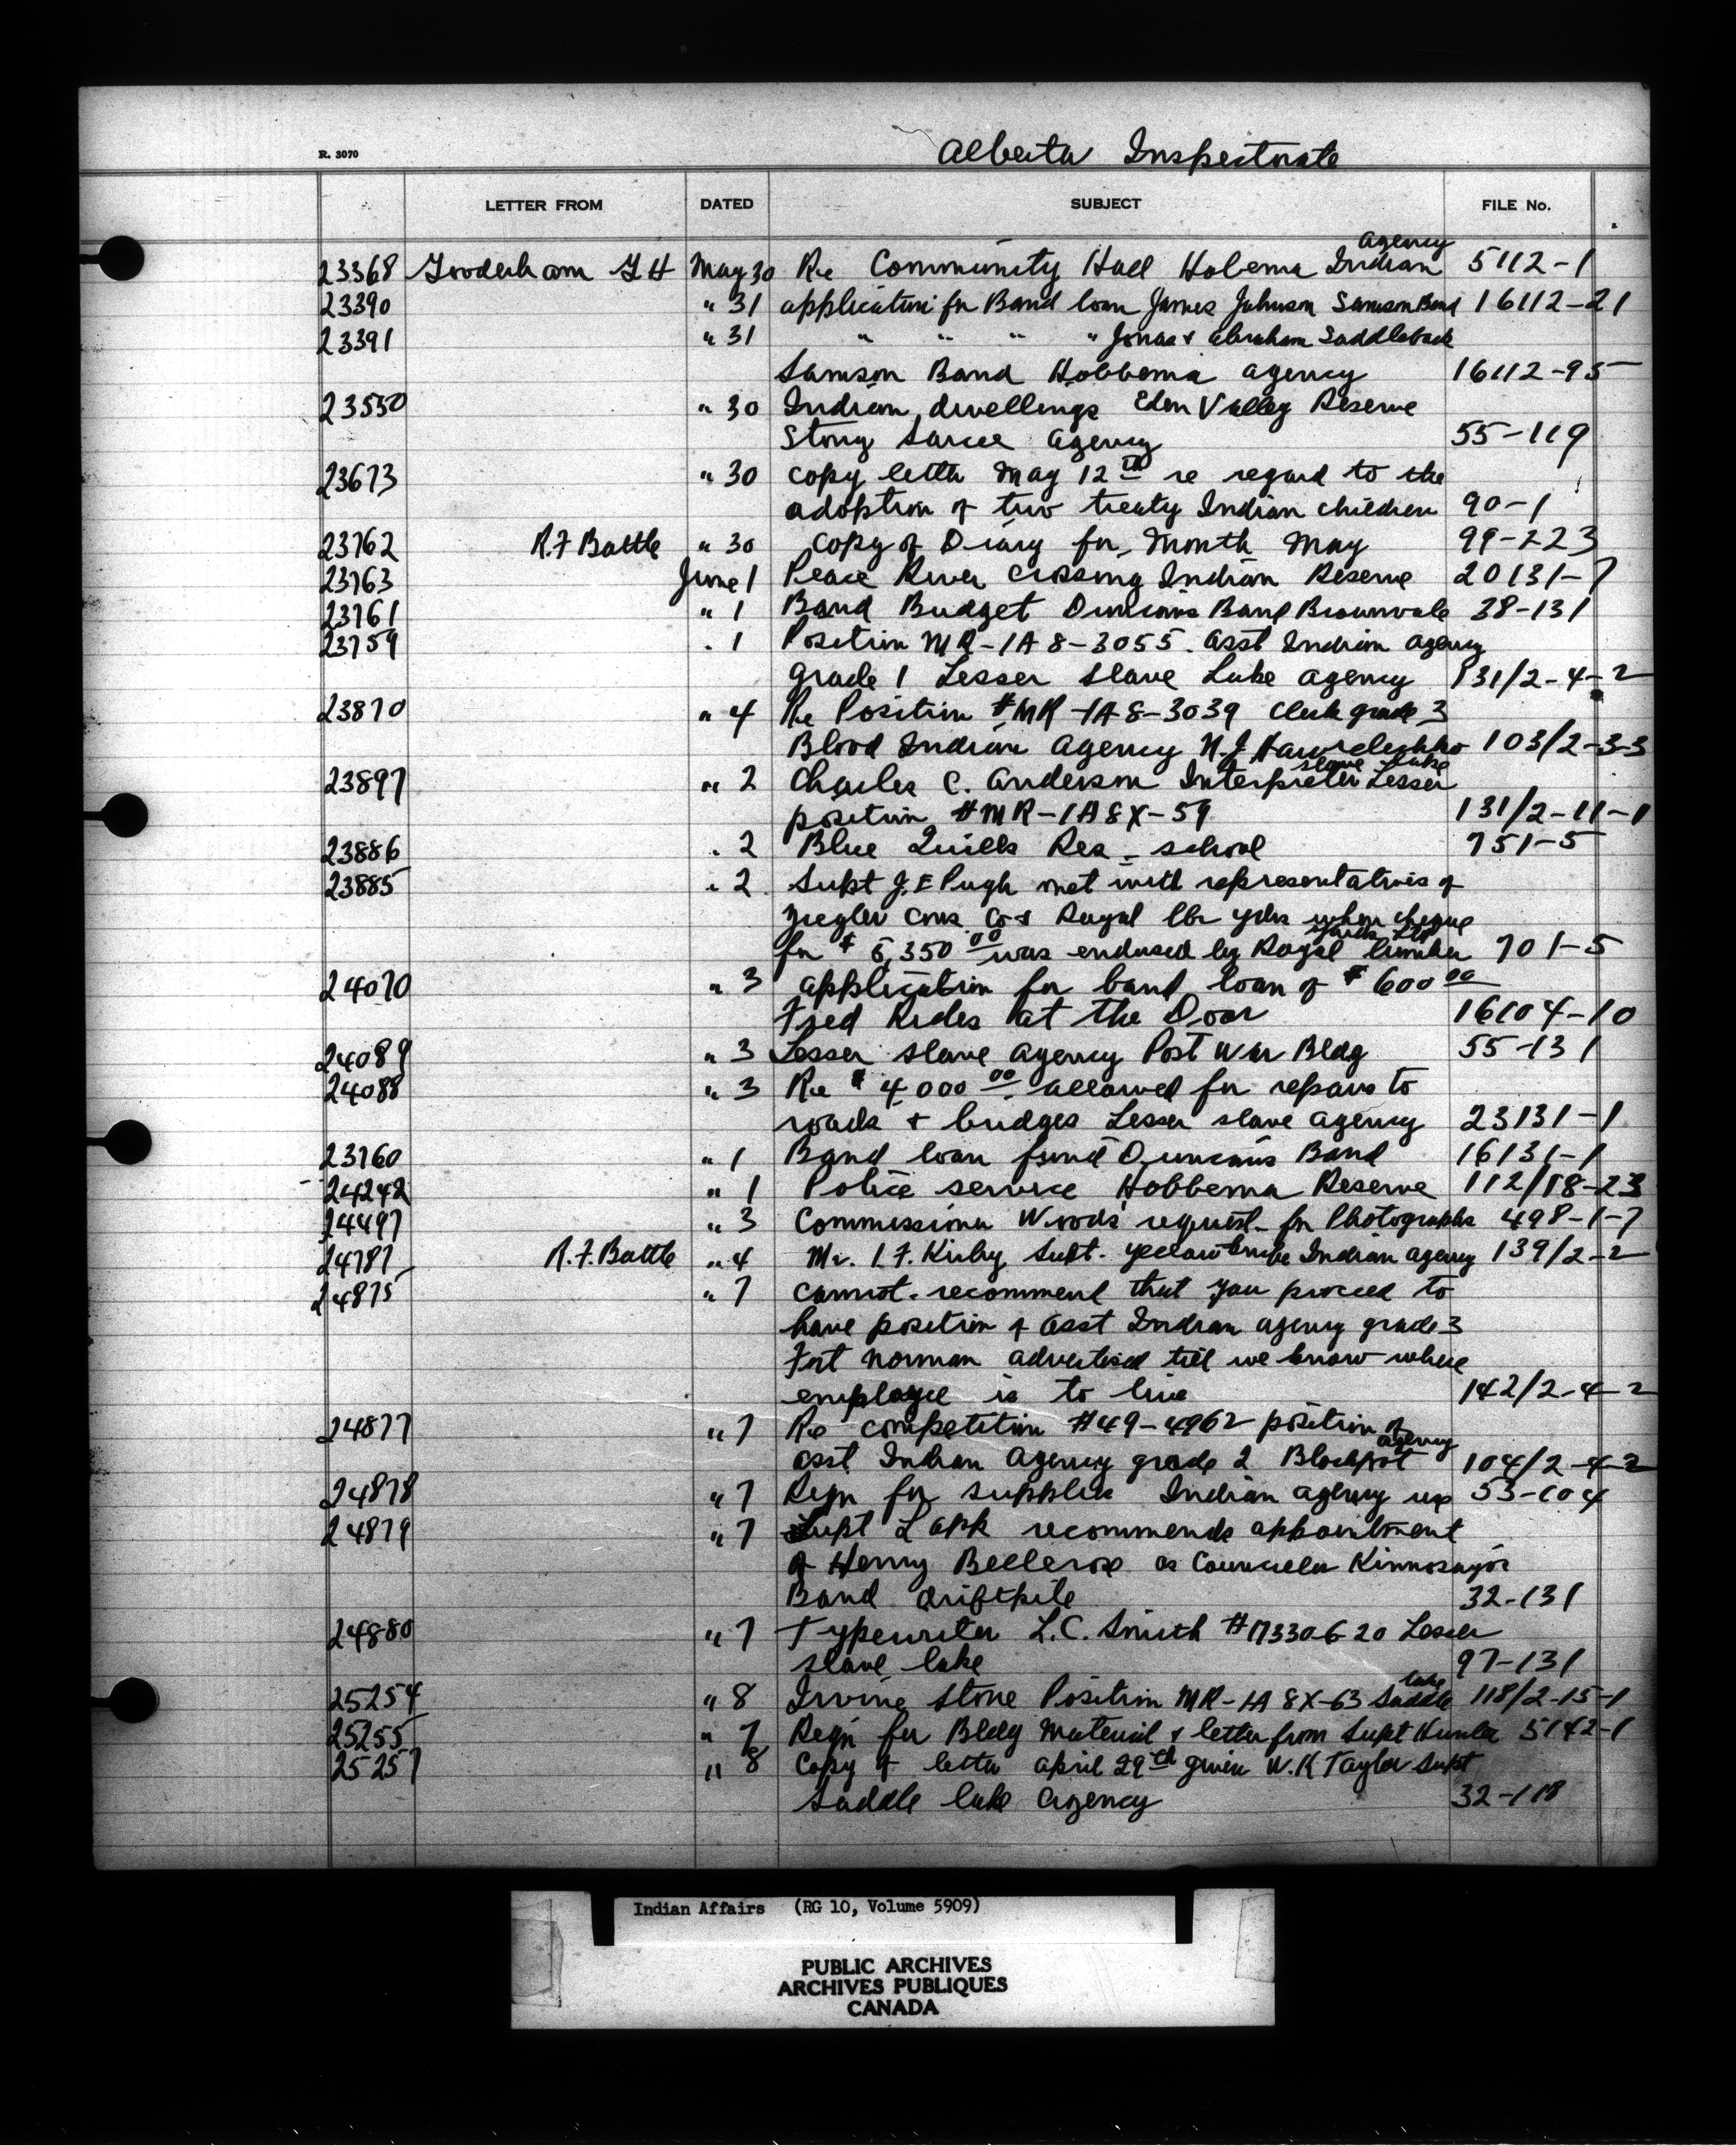 Alberta Inspectorate
R. 3070
LETTER FROM DATED SUBJECT FILE No.
23368 Gooderham G H May 30 Re Community Hall Hobema Indian Agency 5112-1
23390 " 31 application for Band loan James Johnson Samson Band 16112-21
23391 " 31 " " " " Jonas & Abraham Saddleback
Samson Band Hobbema agency 16112-95
23550 " 30 Indian dwellings Eden Valley Reserve
Stony Sarcee Agency 55-119
23673 " 30 copy letter May 12th re regard to the
adoption of two treaty Indian children 90-1
23762 R.F Battle " 30 Copy of Diary for month May 99-223
23763 June 1 Peace River Crossing Indian Reserve 20131-7
23761 " 1 Band Budget Duncans Band Brownvale 38-131
23759 . 1 Position MR-IA 8-3055. asst Indian Agency
grade 1 Lesser Slave Lake Agency 131/2-4-2
23870 " 4 Re Position # MR-IA-8-3039 Clerk grade 3
Blood Indian Agency N.J. 103/2-3-3
23897 " 2 Charles C. Anderson Interpreter Lesser slave lake
position # MR-IA8X-59 131/2-11-1
23886 . 2 Blue Quills Res. school 751-5
23885 . 2 Supt J.E Pugh met with representatives of
Ziegler Cons Co & Royal lbr yds when cheque
for $ 5,350 00 was endorsed by Royal lumber yards Ltd 701-5
24070 " 3 application for band loan of $ 600 00
Fred Rides at the Door 16104-10
24089 " 3 Lesser slave agency Post War Bldg 55-131
24088 " 3 Re $ 4,000 00 allowed for repairs to
roads & bridges Lesser slave agency 23131-1
23760 " 1 Band loan fund Duncan's Band 16131-1
24242 " 1 Police service Hobbema Reserve 112/18-23
24497 " 3 Commissioner Woods' request for Photographs 498-1-7
24787 R.F. Battle " 4 Mr. I.F. Kirby Supt. Yellowknife Indian agency 139/2-2
24875 " 7 cannot recommend that you proceed to
have position of asst Indian agency grade 3
Fort Norman advertised till we know where
employee is to live 142/2-4-2
24877 " 7 Re competition #49-4962 position of
asst Indian Agency grade 2 Blackfoot agency 104/2-4-2
24878 " 7 Reqn for supplies Indian agency 53-104
24879 " 7 Supt Lapp recommends appointment
of Henry Bellerose as Councelor
Band driftpile 32-131
24880 " 7 Typewriter L.C. Smith #173306-20 Lesser
slave lake 97-131
25254 " 8 Irvine Stone Position MR-IA 8X-63 Saddle lake 118/2-15-1
25255 " 7 Reqn for Bldg Material & letter from Supt Hunter 5142-1
25257 " 8 Copy of letter april 29th given W.K Taylor Supt
Saddle lake Agency 32-118
Indian Affairs (RG 10, Volume 5909)
PUBLIC ARCHIVES
ARCHIVES PUBLIQUES
CANADA